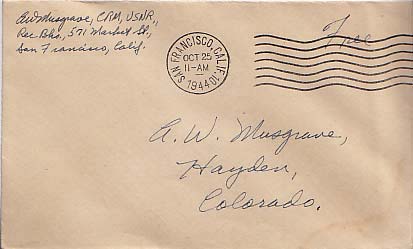 AW Musgrave, CRM, USNR,
Rec. Bks., 571 Market St.,
San Francisco, Calif.
SAN FRANCISCO, CALIF. 10.
OCT 25
11-AM
1944
Free
A. W. Musgrave,
Hayden,
Colorado.